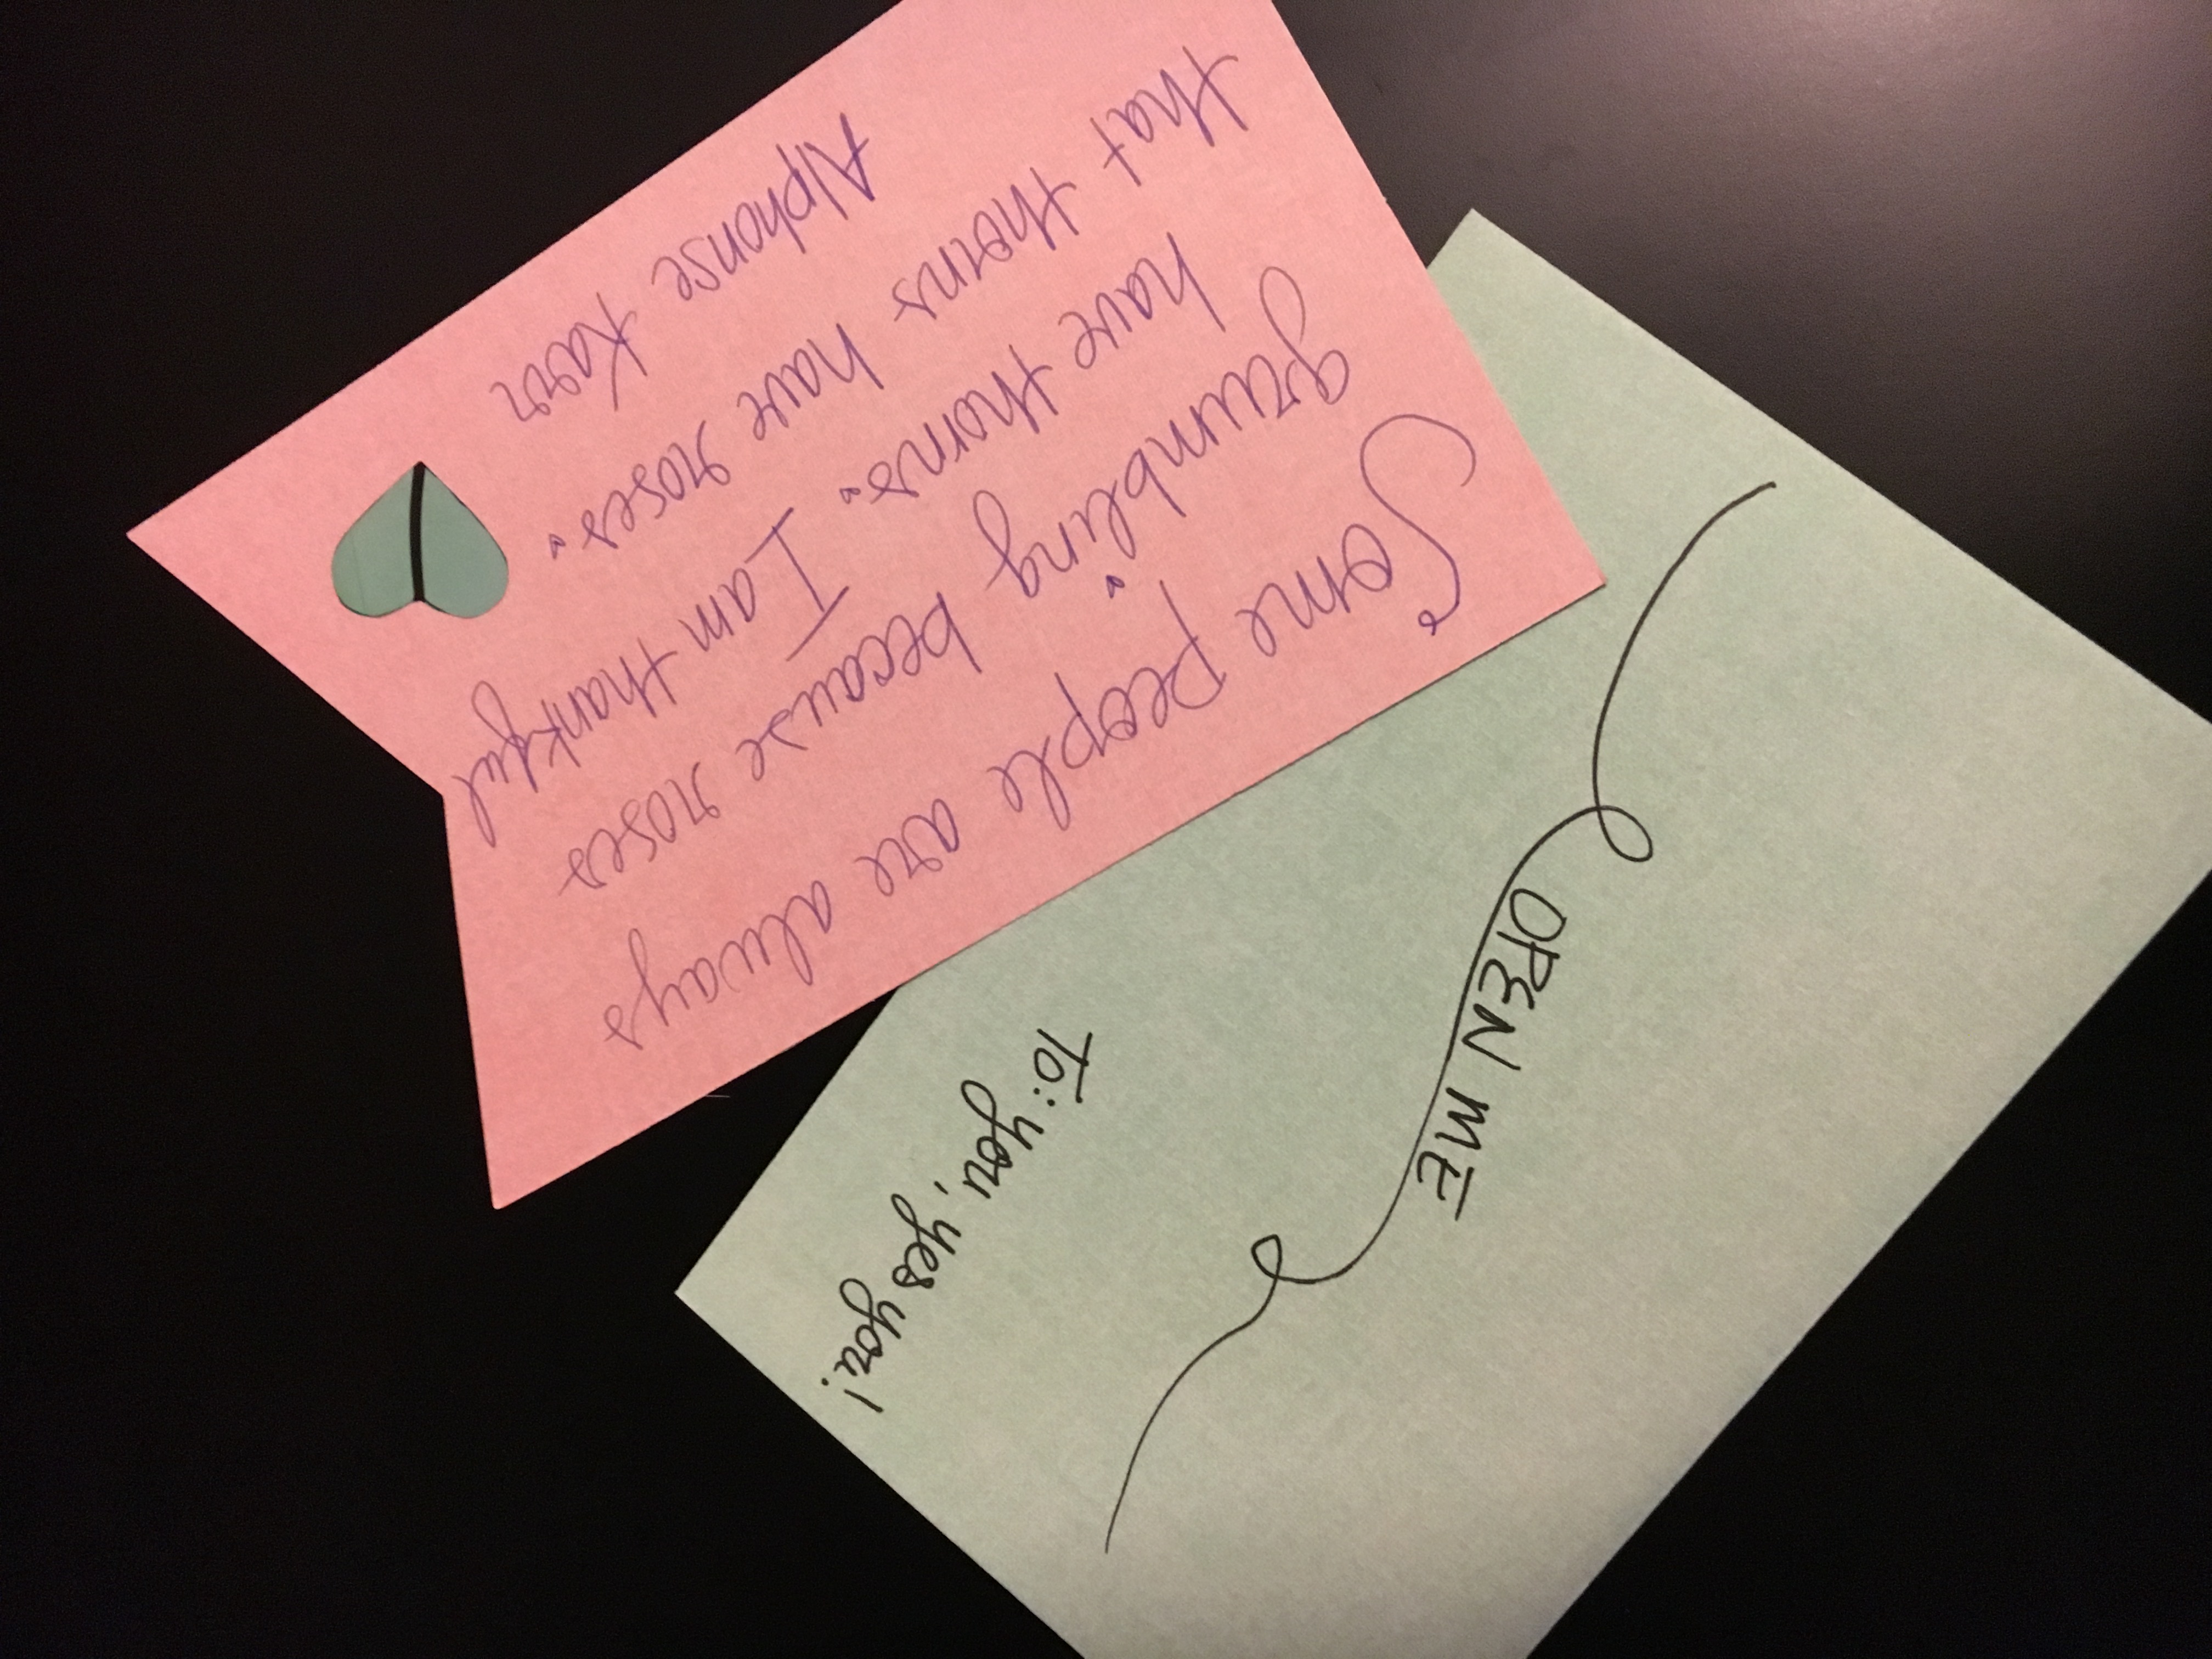 Some people are always
grumbling because roses
have thorns. I am thankful
that thorns have roses.
Alphonse Karr
OPEN ME
To: you, yes you!